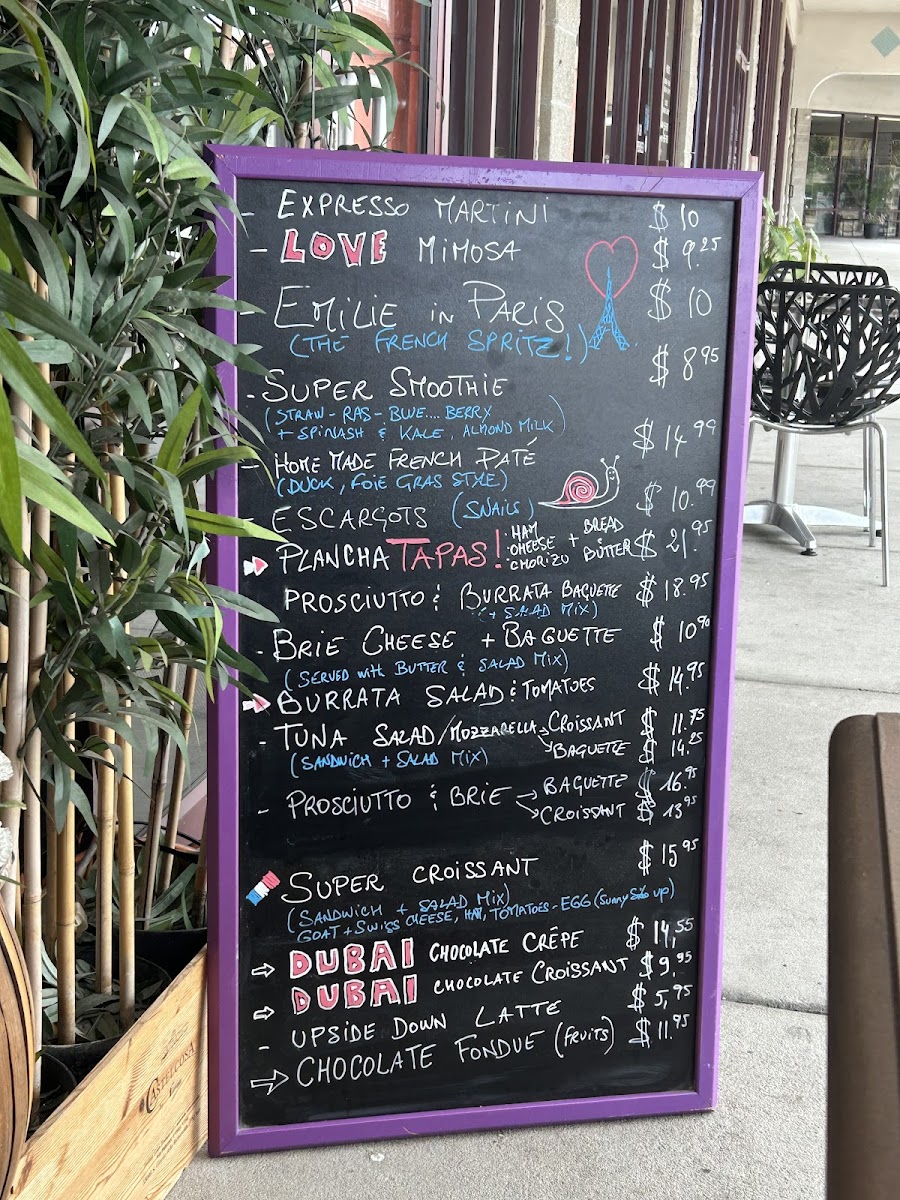 - EXPRESSO MARTINI $ 10
- LOVE MIMOSA $ 9.25
- EMILIE IN PARIS $ 10
(THE FRENCH SPRITZ!)
- SUPER SMOOTHIE $ 8.95
(STRAW - RAS - BLUE.... BERRY
+ SPINASH & KALE, ALMOND MILK)
- HOME MADE FRENCH PATÉ $ 14.99
(DUCK, FOIE GRAS STYLE)
- ESCARGOTS (SNAILS) $ 10.99
PLANCHA TAPAS! HAM CHEESE CHORIZO + BREAD BUTTER $ 21.95
PROSCIUTTO & BURRATA BAGUETTE $ 18.95
(+ SALAD MIX)
- BRIE CHEESE + BAGUETTE $ 10.90
(SERVED with BUTTER & SALAD MIX)
BURRATA SALAD & TOMATOES $ 14.95
- TUNA SALAD/MOZZARELLA CROISSANT $ 11.95
BAGUETTE $ 14.25
(SANDWICH + SALAD MIX)
- PROSCIUTTO & BRIE → BAGUETTE $ 16.95
CROISSANT $ 13.95
SUPER CROISSANT $ 15.95
(SANDWICH + SALAD MIX)
GOAT + SWISS CHEESE, HAM, TOMATOES - EGG (Sunny Side up)
DUBAI CHOCOLATE CRÊPE $ 14,55
DUBAI CHOCOLATE CROISSANT $ 9,95
- UPSIDE DOWN LATTE $ 5,95
CHOCOLATE FONDUE (FRUITS) $ 11.95